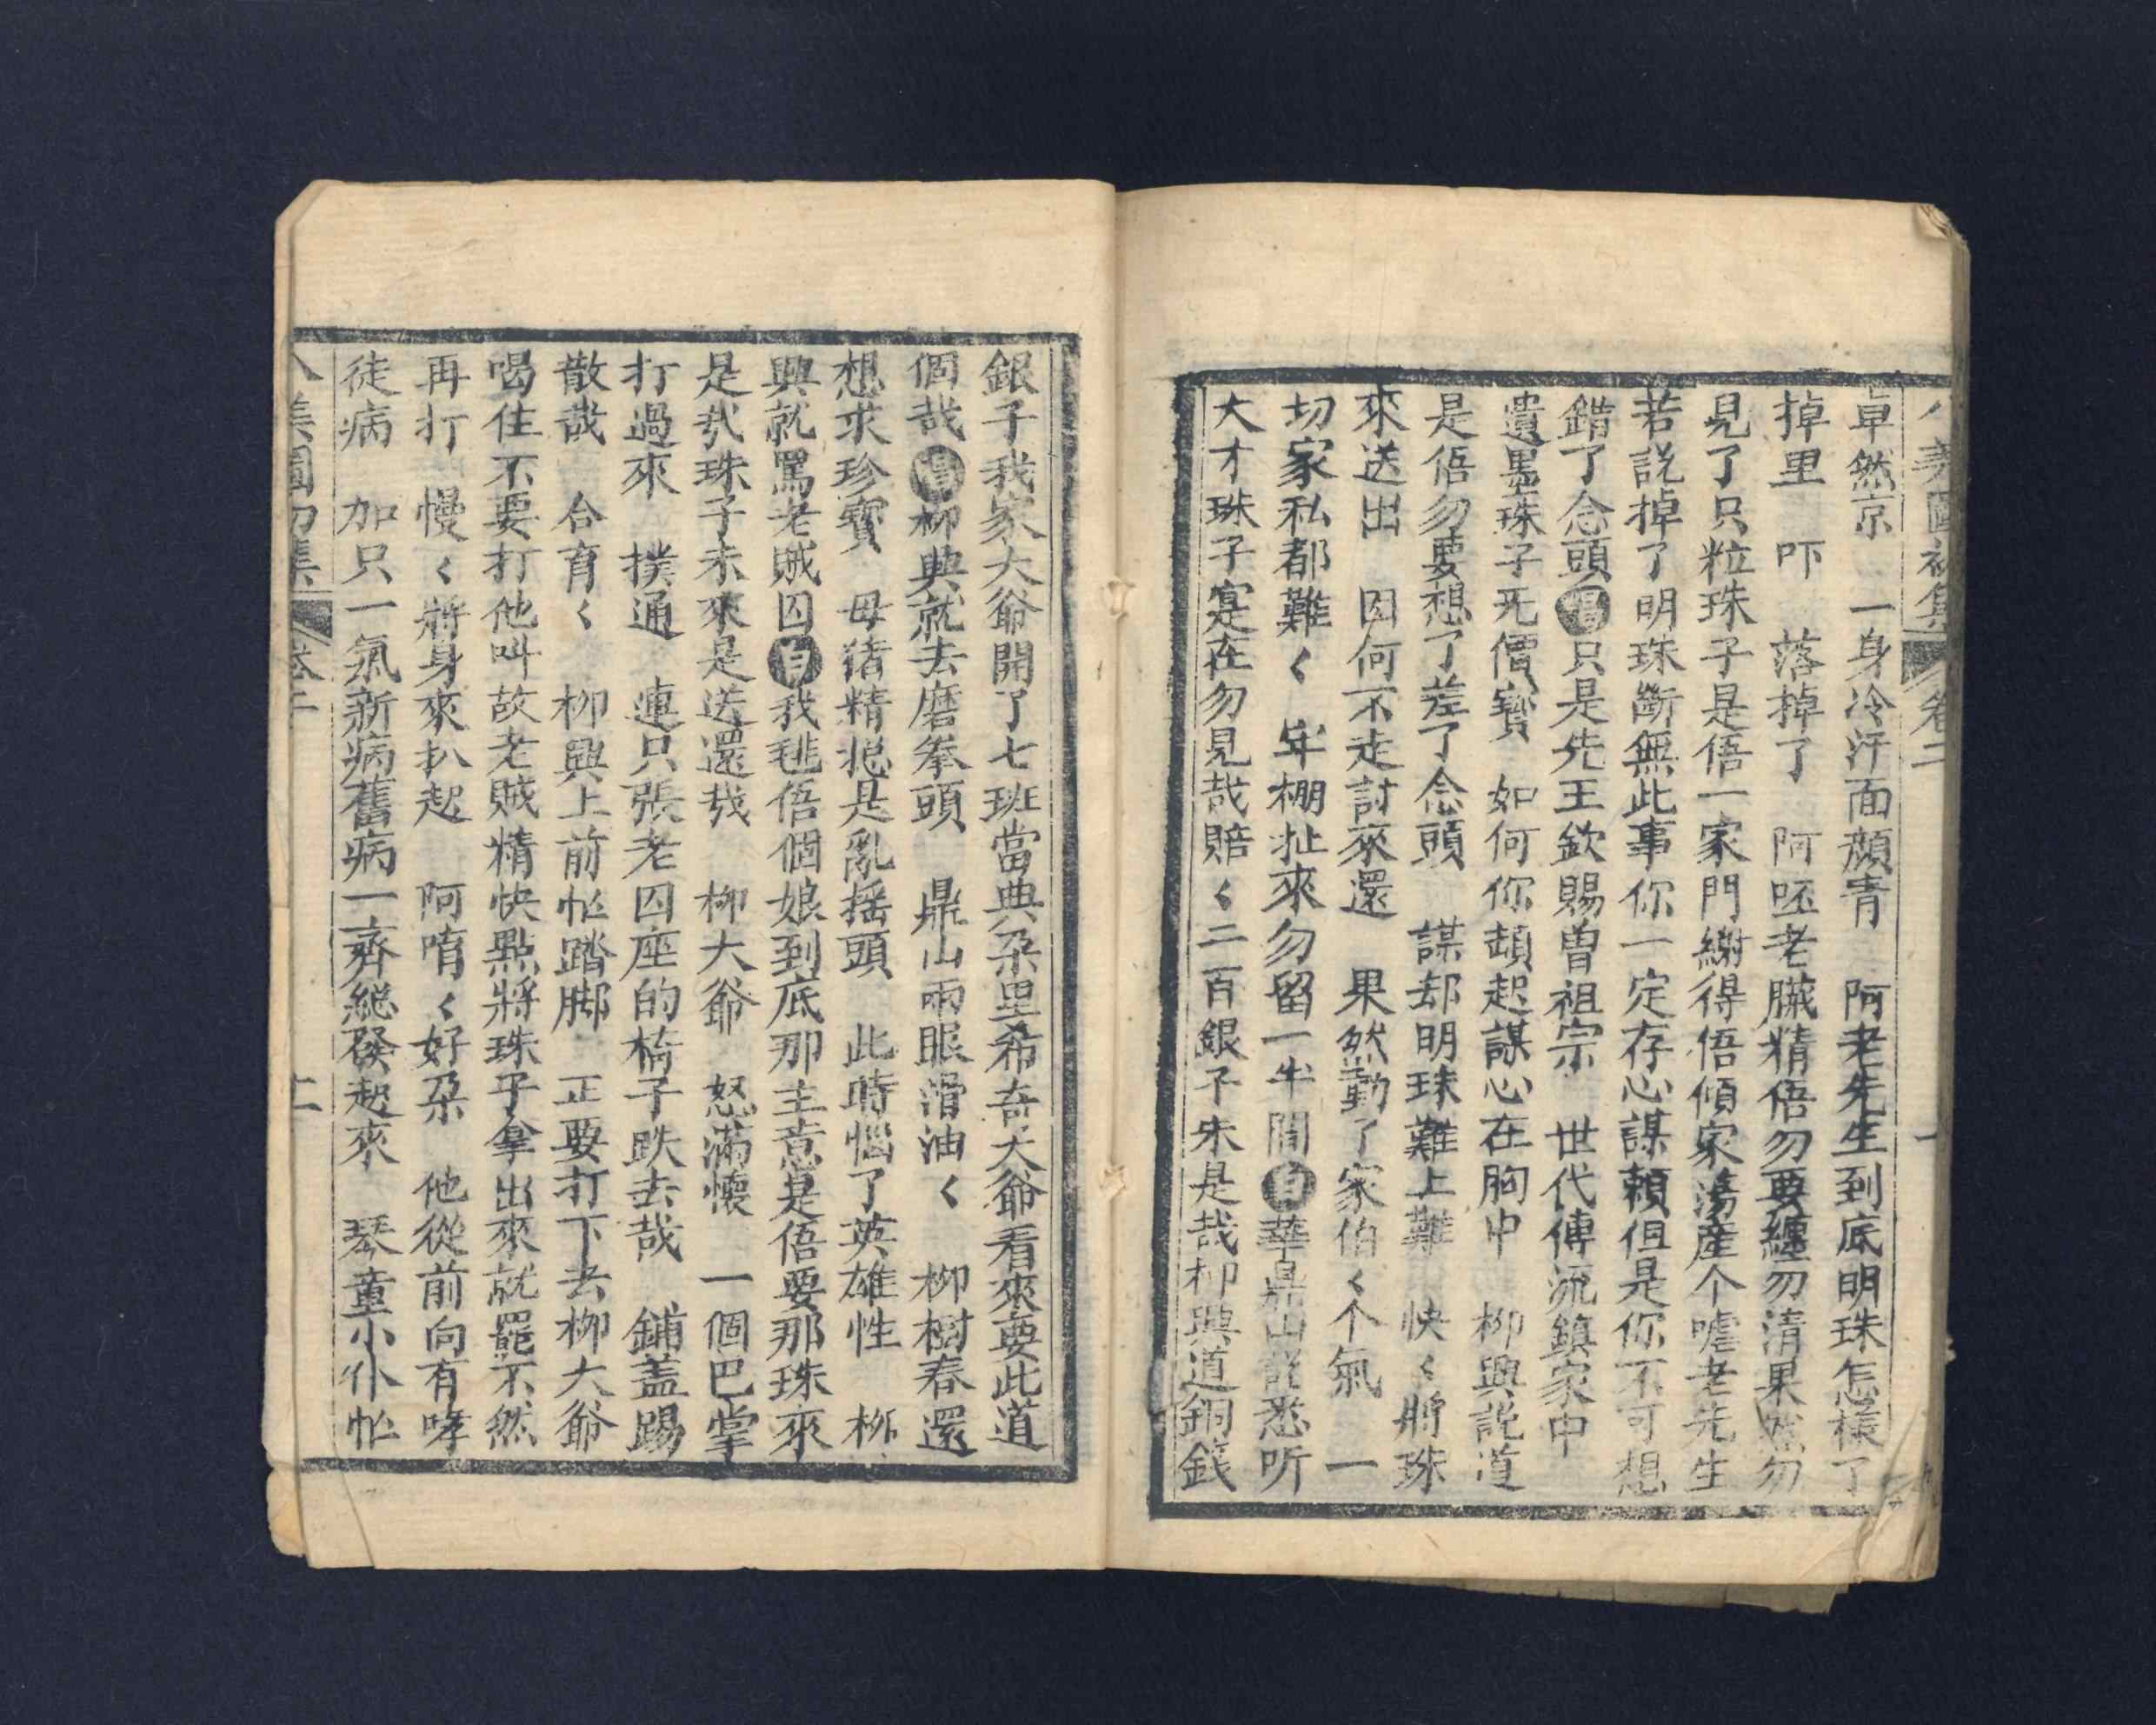 八美圖初集 卷二 一
卓然京　一身冷汗面顏青　阿老先生到底明珠怎樣了
掉里　吓　落掉了　阿呸老臟精俉勿要纏勿清果然勿
見了只粒珠子是俉一家門綳得俉傾家蕩產个嘘老先生
若説掉了明珠斷無此事你一定存心謀賴但是你不可想
錯了念頭唱只是先王欽賜曾祖宗　世代傳流鎮家中
遺墨珠子无價寶　如何你頓起謀心在胸中　柳興説道
是俉勿要想了差了念頭　謀却明珠難上難　快〻將珠
來送出　因何不走討來還　果然動了家伯〻个氣　一
切家私都難〻　牢棚扯來勿留一半間白華鼎山説悉听
大才珠子寔在勿見哉賠〻二百銀子朱是哉柳興道銅錢
銀子我家大爺開了七班當典朶里希奇大爺看來要此道
個哉唱柳興就去磨拳頭　鼎山兩眼滑油〻　柳樹春還
想求珍寶　母猪精㧾是亂搖頭　此時惱了英雄性　柳
興就罵老賊囚白我毴俉個娘到底那主意是俉要那珠來
是哉珠子未來是送還哉　柳大爺　怒滿懷　一個巴掌
打過來　撲通　連只張老囚座的椅子跌去哉　鋪蓋踢
散哉　合育〻　柳興上前怅踏脚　正要打下去柳大爺
喝住不要打他叫故老賊精快點將珠子拿出來就罷不然
再打　慢〻將身來扒起　阿唷〻好朶　他從前向有哮
徒病　加只一氣新病舊病一齊総發起來　琴童小仆怅
八美圖初集 卷二 二